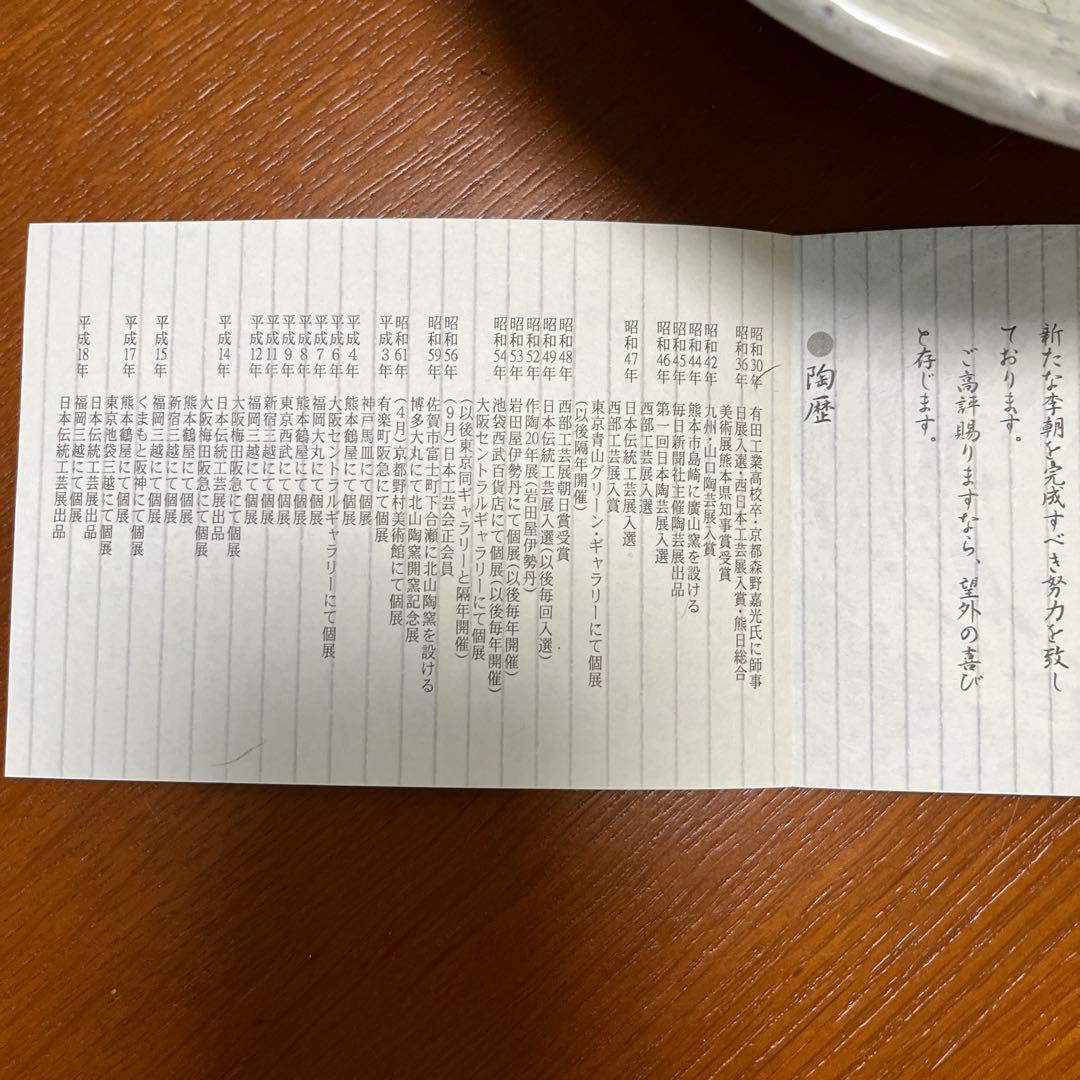 新たな李朝を完成すべき努力を致し
ております。
ご高評賜りますなら、望外の喜び
と存じます。
●陶歴
昭和30年 有田工業高校卒・京都森野嘉光氏に師事
昭和36年 日展入選・西日本工芸展入賞・熊日総合
美術展熊本県知事賞受賞
昭和42年 九州・山口陶芸展入賞
昭和44年 熊本市島崎に廣山窯を設ける
昭和45年 毎日新聞社主催陶芸展出品
昭和46年 第一回日本陶芸展入選
西部工芸展入選
昭和47年 日本伝統工芸展入選
西部工芸展入賞
東京青山グリーン・ギャラリーにて個展
(以後隔年開催)
昭和48年 西部工芸展朝日賞受賞
昭和49年 日本伝統工芸展入選(以後毎回入選)
昭和52年 作陶20年展(岩田屋伊勢丹)
昭和53年 岩田屋伊勢丹にて個展(以後毎年開催)
昭和54年 池袋西武百貨店にて個展(以後毎年開催)
大阪セントラルギャラリーにて個展
(以後東京同ギャラリーと隔年開催)
昭和56年 (9月)日本工芸会正会員
昭和59年 佐賀市富士町下合瀬に北山陶窯を設ける
博多大丸にて北山陶窯開窯記念展
昭和61年 (4月)京都野村美術館にて個展
平成3年 有楽町阪急にて個展
神戸馬皿にて個展
平成4年 熊本鶴屋にて個展
平成6年 大阪セントラルギャラリーにて個展
平成7年 福岡大丸にて個展
平成8年 熊本鶴屋にて個展
平成9年 東京西武にて個展
平成11年 新宿三越にて個展
平成12年 福岡三越にて個展
大阪梅田阪急にて個展
平成14年 日本伝統工芸展出品
大阪梅田阪急にて個展
熊本鶴屋にて個展
新宿三越にて個展
平成15年 福岡三越にて個展
くまもと阪神にて個展
平成17年 熊本鶴屋にて個展
東京池袋三越にて個展
日本伝統工芸展出品
平成18年 福岡三越にて個展
日本伝統工芸展出品